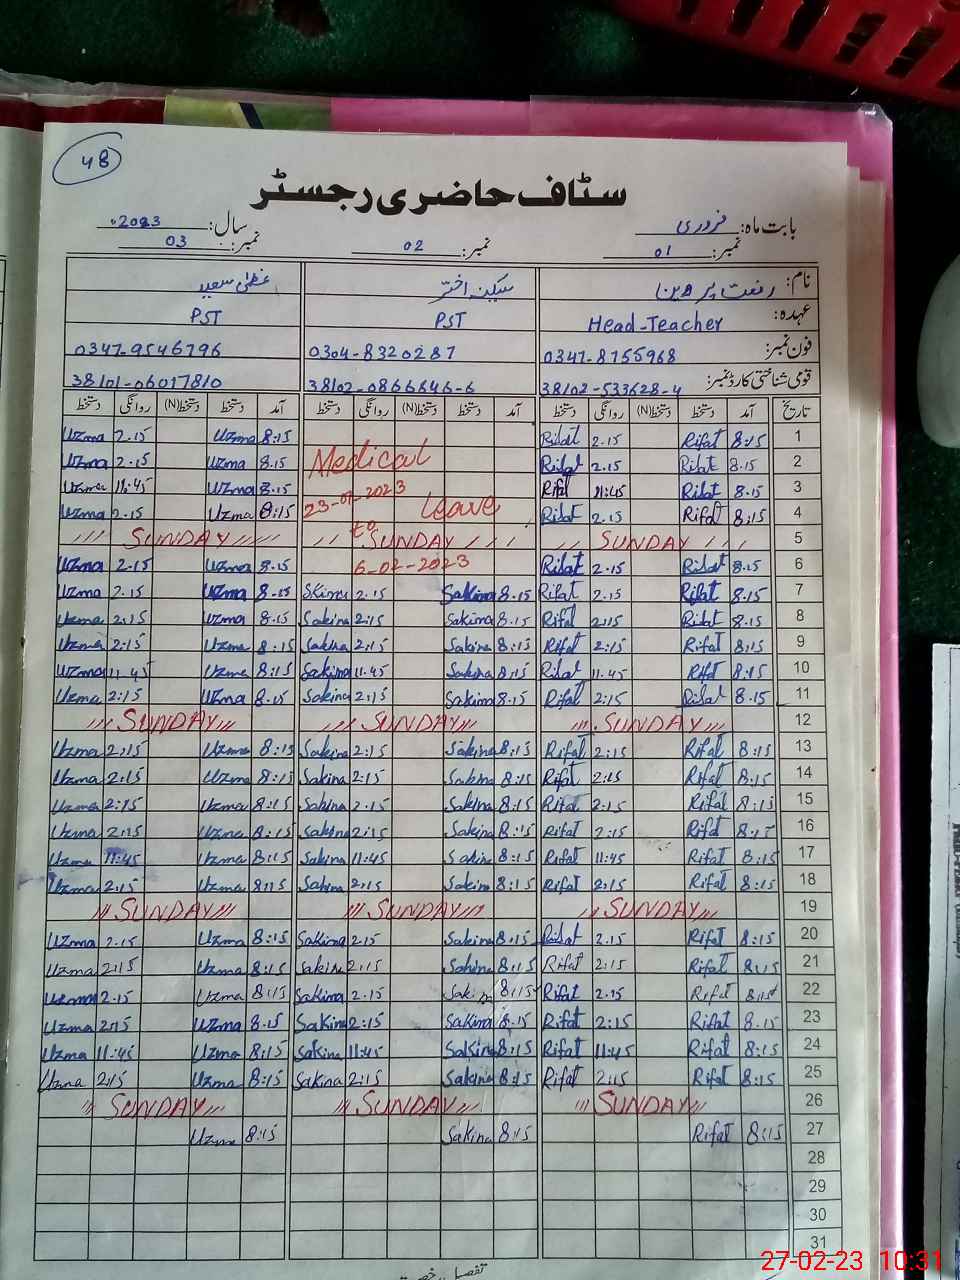 48
سٹاف حاضری رجسٹر
بابت ماہ: فروری سال: 2023
نمبر: 01 نمبر: 02 نمبر: 03
نام: رفعت پروین سکینہ اختر عظمیٰ سعید
عہدہ: Head-Teacher PST PST
فون نمبر: 0347-8155968 0304-8320287 0347-9546796
قومی شناختی کارڈ نمبر: 38102-533628-4 38102-0866646-6 38101-06017810
تاریخ آمد دستخط دستخط(N) روانگی دستخط آمد دستخط دستخط(N) روانگی دستخط آمد دستخط دستخط(N) روانگی دستخط
Uzma 2.15 Uzma 8:15 Rifat 2.15 Rifat 8:15 1
Uzma 2.15 Uzma 8.15 Medical Rifat 2.15 Rifat 8.15 2
Uzma 11:45 Uzma 8.15 23-01-2023 Rifat 11:45 Rifat 8.15 3
Uzma 2.15 Uzma 8:15 Leave Rifat 2.15 Rifat 8:15 4
SUNDAY to SUNDAY SUNDAY 5
Uzma 2.15 Uzma 8.15 6-02-2023 Rifat 2.15 Rifat 8.15 6
Uzma 2.15 Uzma 8.15 Skina 2.15 Sakina 8.15 Rifat 2.15 Rifat 8.15 7
Uzma 2:15 Uzma 8.15 Sakina 2:15 Sakina 8.15 Rifat 2:15 Rifat 8.15 8
Uzma 2:15 Uzma 8:15 Sakina 2:15 Sakina 8:15 Rifat 2:15 Rifat 8:15 9
Uzma 11.45 Uzma 8:15 Sakina 11.45 Sakina 8:15 Rifat 11.45 Rifat 8:15 10
Uzma 2:15 Uzma 8.15 Sakina 2:15 Sakina 8:15 Rifat 2:15 Rifat 8.15 11
SUNDAY SUNDAY SUNDAY 12
Uzma 2:15 Uzma 8:15 Sakina 2:15 Sakina 8:15 Rifat 2:15 Rifat 8:15 13
Uzma 2:15 Uzma 8:15 Sakina 2:15 Sakina 8:15 Rifat 2:15 Rifat 8:15 14
Uzma 2:15 Uzma 8:15 Sakina 2.15 Sakina 8:15 Rifat 2:15 Rifat 8:15 15
Uzma 2:15 Uzma 8:15 Sakina 2:15 Sakina 8:15 Rifat 2:15 Rifat 8:15 16
Uzma 11:45 Uzma 8:15 Sakina 11:45 Sakina 8:15 Rifat 11:45 Rifat 8:15 17
Uzma 2:15 Uzma 8:15 Sakina 2:15 Sakina 8:15 Rifat 2:15 Rifat 8:15 18
SUNDAY SUNDAY SUNDAY 19
Uzma 2.15 Uzma 8:15 Sakina 2.15 Sakina 8:15 Rifat 2.15 Rifat 8:15 20
Uzma 2:15 Uzma 8:15 Sakina 2:15 Sakina 8:15 Rifat 2:15 Rifat 8:15 21
Uzma 2.15 Uzma 8:15 Sakina 2.15 Sakina 8:15 Rifat 2.15 Rifat 8:15 22
Uzma 2:15 Uzma 8.15 Sakina 2:15 Sakina 8.15 Rifat 2:15 Rifat 8.15 23
Uzma 11:45 Uzma 8:15 Sakina 11:45 Sakina 8:15 Rifat 11:45 Rifat 8:15 24
Uzma 2:15 Uzma 8:15 Sakina 2:15 Sakina 8:15 Rifat 2:15 Rifat 8:15 25
SUNDAY SUNDAY SUNDAY 26
Uzma 8:15 Sakina 8:15 Rifat 8:15 27
28
29
30
31
27-02-23 10:31